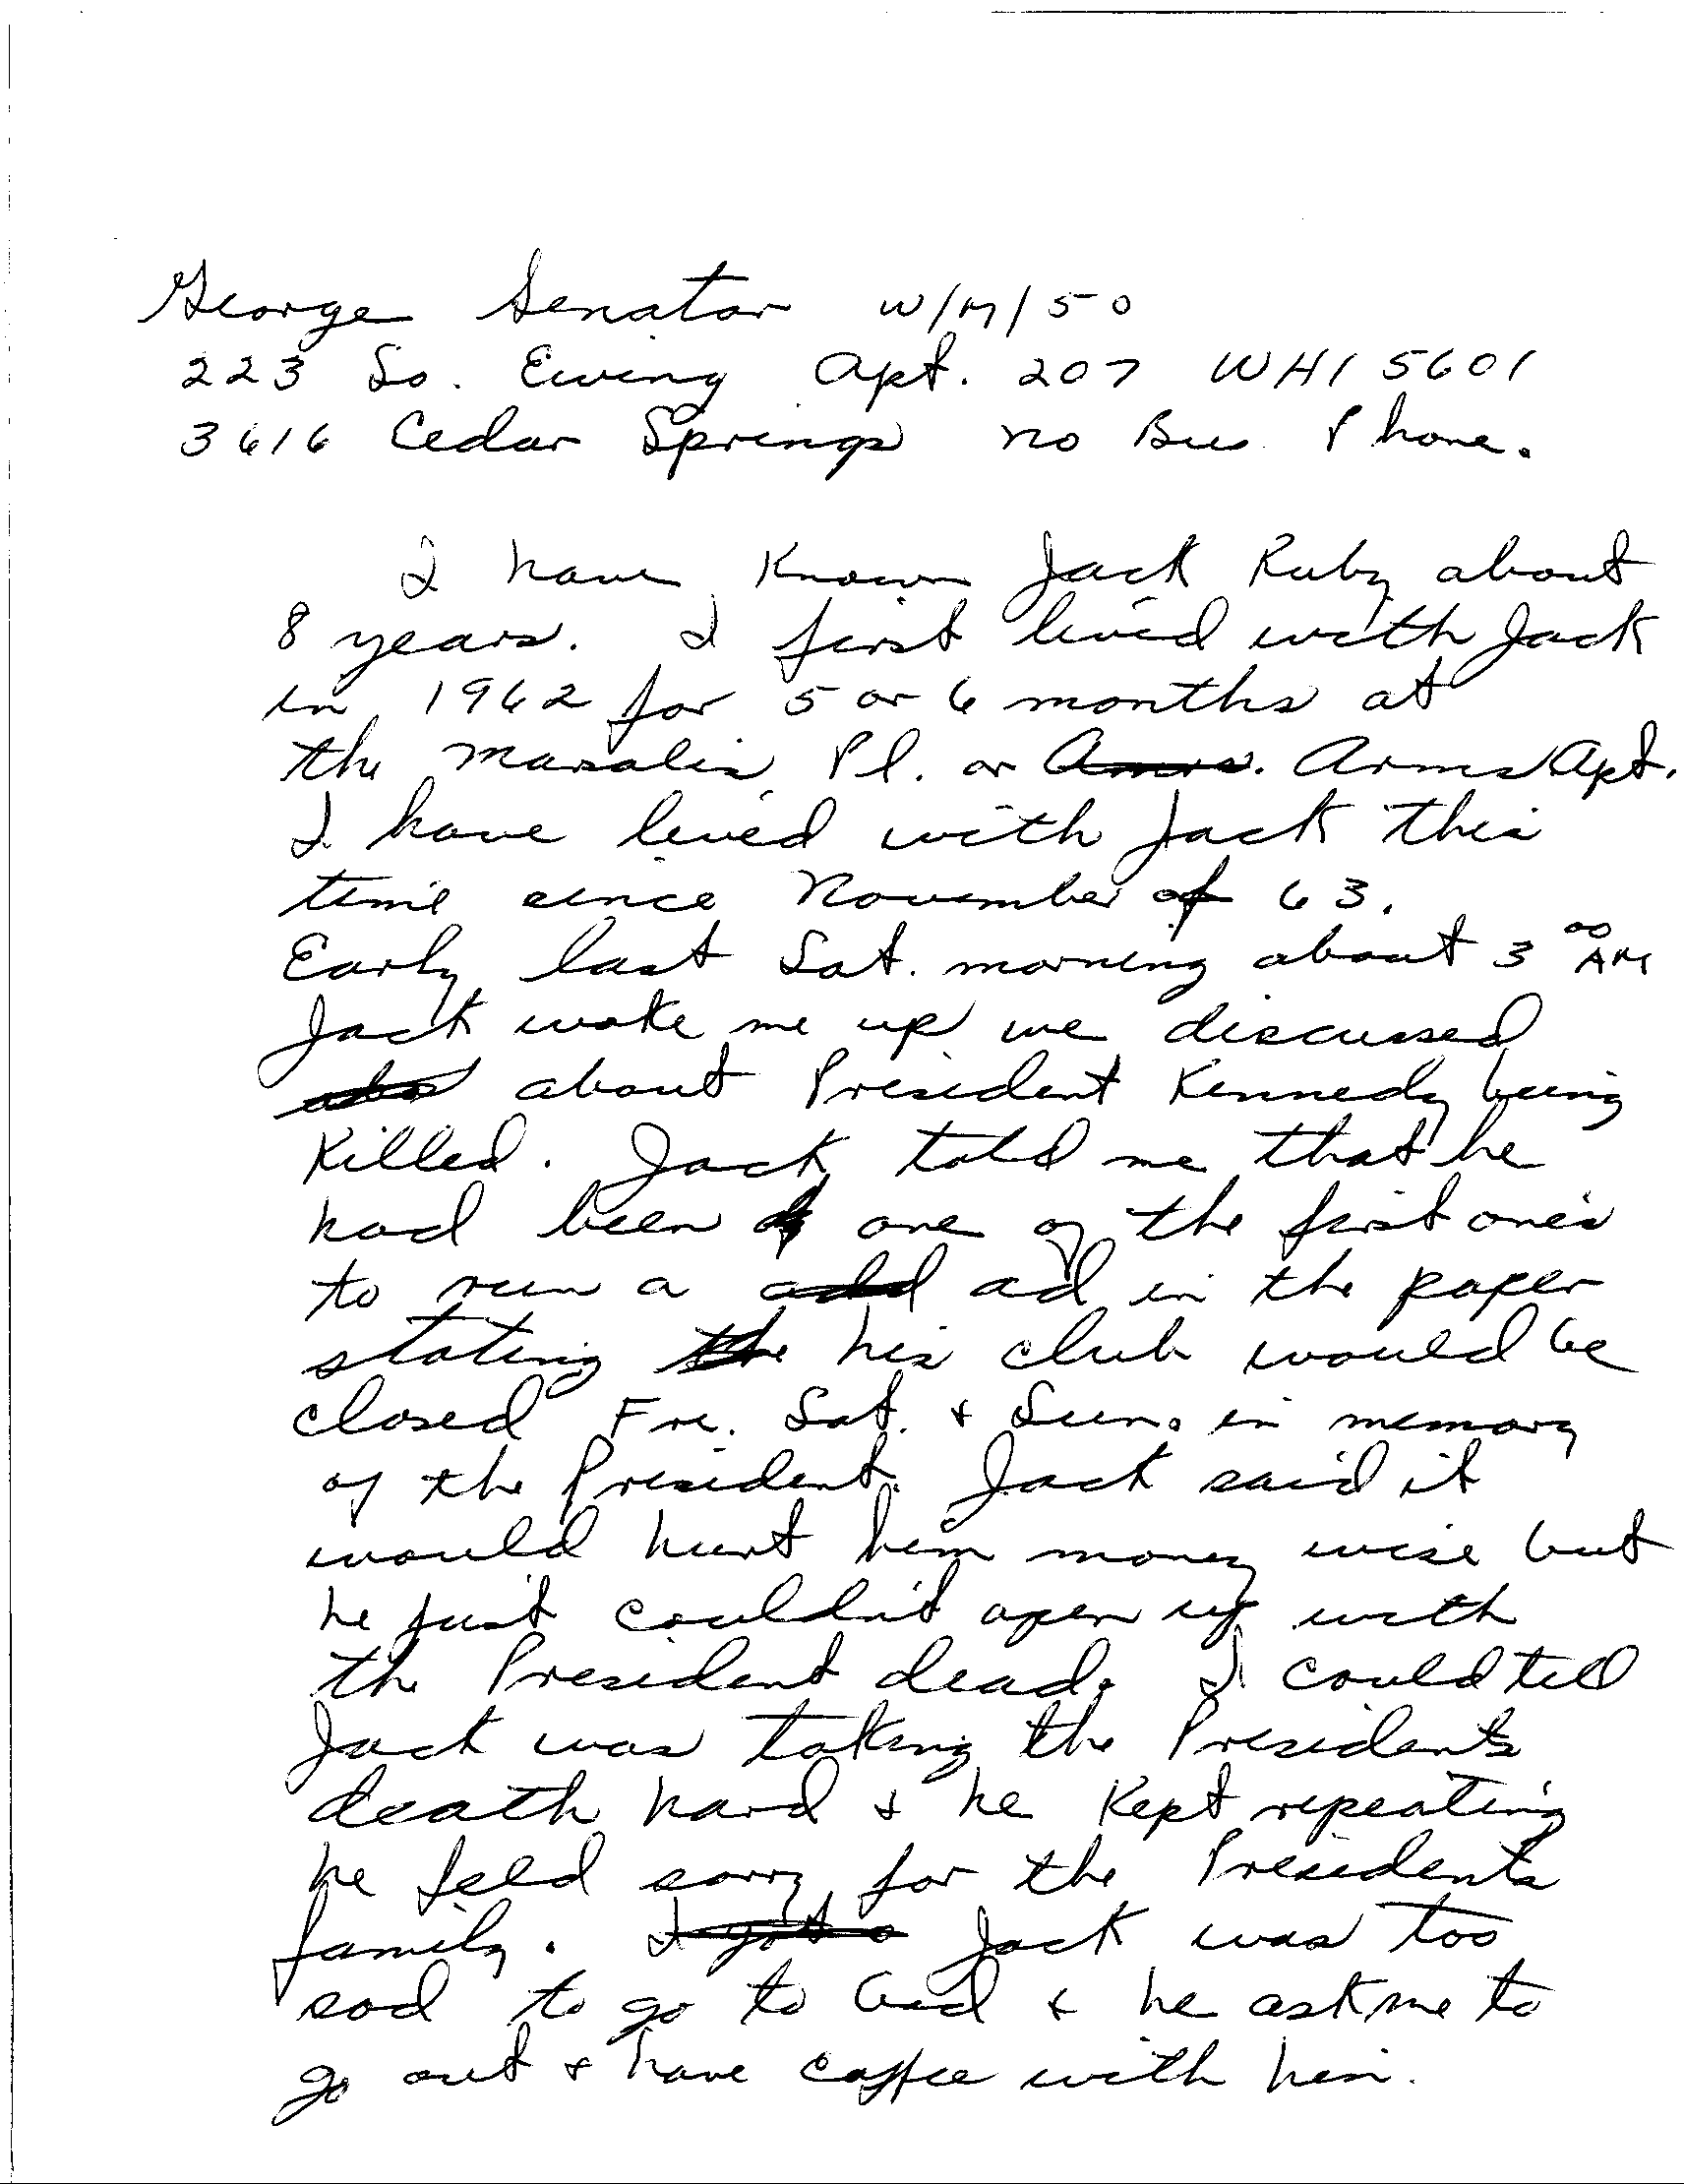 George Senator W/M/50
223 So. Ewing Apt. 207 WH1 5601
3616 Cedar Springs no Bus Phone.
I have known Jack Ruby about
8 years. I first lived with Jack
in 1962 for 5 or 6 months at
the Marsalis Pl. or Arms Apt.
I have lived with Jack this
time since November of 63.
Early last Sat. morning about 3 00 AM
Jack woke me up we discussed
about President Kennedy being
Killed. Jack told me that he
had been one of the first one's
to run a add ad in the paper
stating the his club would be
closed Fri. Sat. & Sun. in memory
of the President. Jack said it
would hurt him money wise but
he just couldn't open up with
the President dead. I could tell
Jack was taking the Presidents
death hard & he kept repeating
he feld sorry for the Presidents
family. I got a Jack was too
sad to go to bed & he ask me to
go out & have coffee with him.